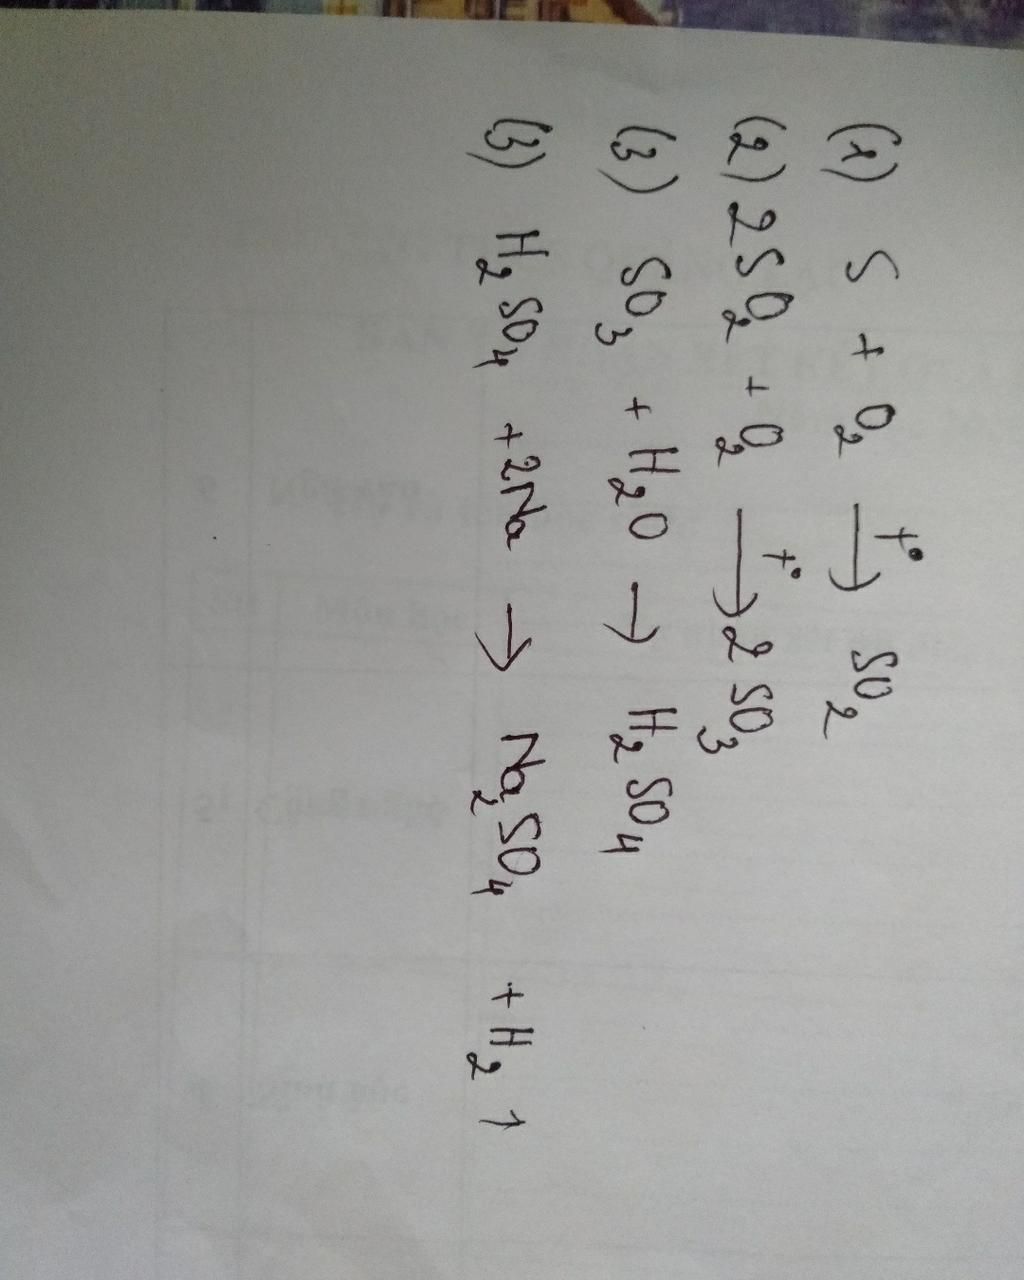 (1) S + O₂ —t°→ SO₂
(2) 2SO₂ + O₂ —t°→ 2SO₃
(3) SO₃ + H₂O → H₂SO₄
(3) H₂SO₄ + 2Na → Na₂SO₄ + H₂ ↑